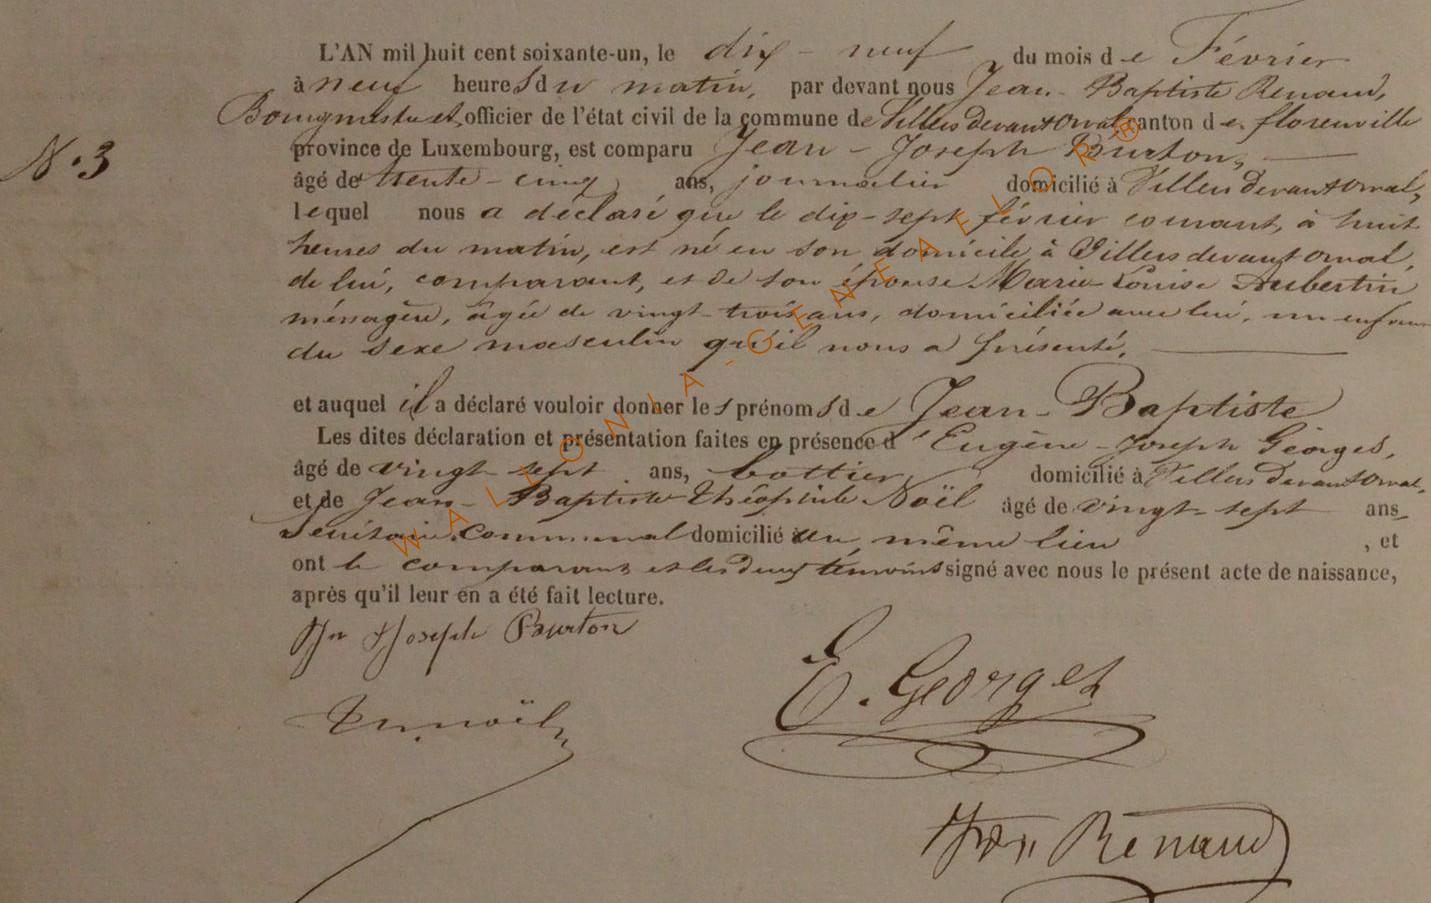 L'AN mil huit cent soixante-un, le dix-neuf du mois de Février
à neuf heures du matin, par devant nous Jean-Baptiste Renaud,
Bourgmestre et officier de l'état civil de la commune de Villers devant Orval canton de florenville
N.3 province de Luxembourg, est comparu Jean-Joseph Burton,
âgé de trente-cinq ans, journalier domicilié à Villers devant orval,
lequel nous a déclaré que le dix-sept février courant, à huit
heures du matin, est né en son domicile à Villers devant orval,
de lui, comparant, et de son épouse Marie-Louise Aubertin
ménagère, âgée de vingt-trois ans, domiciliée avec lui, un enfant
du sexe masculin qu'il nous a présenté.
et auquel il a déclaré vouloir donner les prénoms de Jean-Baptiste
Les dites déclaration et présentation faites en présence d'Eugène-Joseph Géorges,
âgé de vingt-sept ans, bottier, domicilié à Villers devant orval,
et de Jean-Baptiste Théophile Noël âgé de vingt-sept ans
Secrétaire communal domicilié au même lieu, et
ont le comparant et les deux témoins signé avec nous le présent acte de naissance,
après qu'il leur en a été fait lecture.
Jn Joseph Burton
E. Georges
noël
Renaud
WALLONIA-GENEAFLOR®